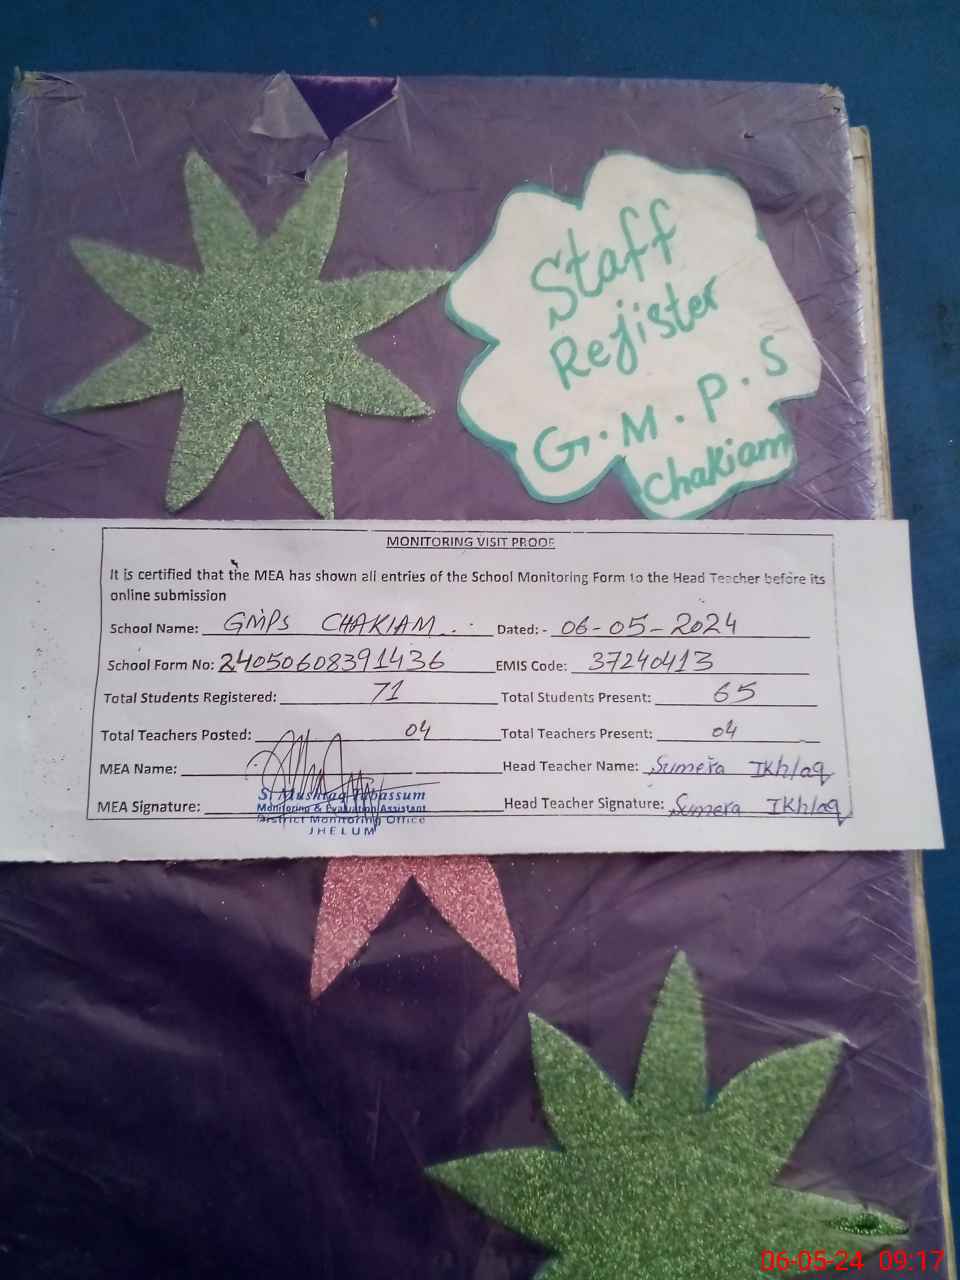 Staff
Rejister
G.M.P.S
Chakiam
MONITORING VISIT PROOF
It is certified that the MEA has shown all entries of the School Monitoring Form to the Head Teacher before its
online submission
School Name: GMPS CHAKIAM Dated: - 06-05-2024
School Form No: 24050608391436 EMIS Code: 37240413
Total Students Registered: 71 Total Students Present: 65
Total Teachers Posted: 04 Total Teachers Present: 04
MEA Name: Head Teacher Name: Sumera Ikhlaq
MEA Signature: Head Teacher Signature: Sumera Ikhlaq
S. Mushtaq Tabassum
Monitoring & Evaluation Assistant
District Monitoring Office
JHELUM
06-05-24 09:17